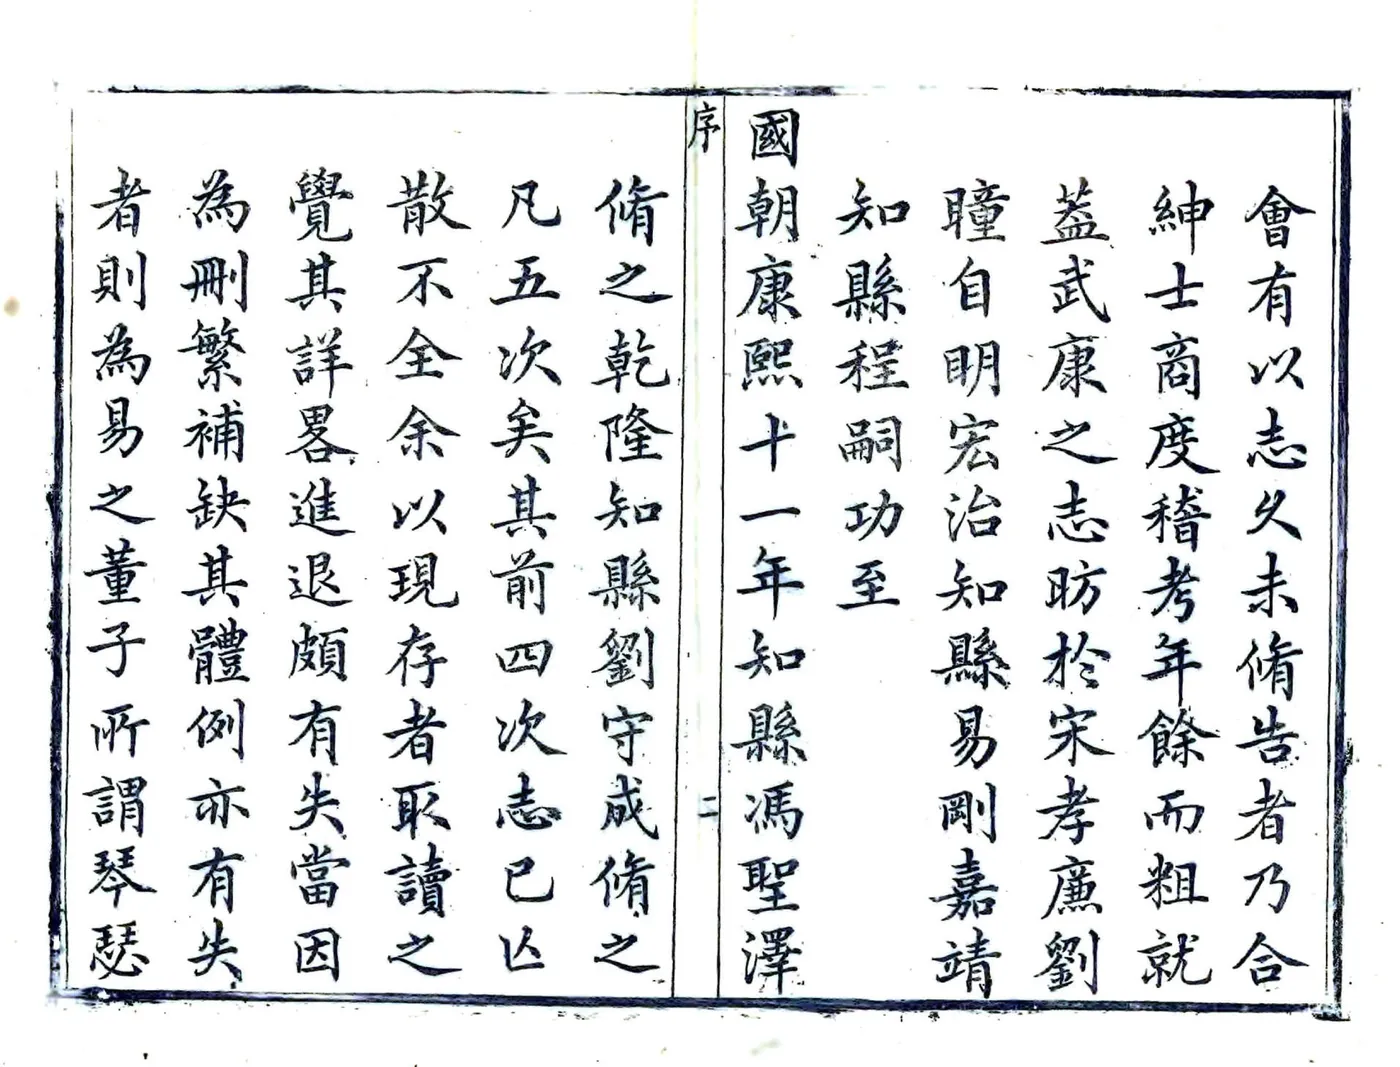 會有以志久未脩告者乃合
紳士商度稽考年餘而粗就
葢武康之志昉於宋孝廉劉
瞳自明宏治知縣易剛嘉靖
知縣程嗣功至
國朝康熙十一年知縣馮聖澤
序
二
脩之乾隆知縣劉守成脩之
凡五次矣其前四次志已亾
散不全余以現存者取讀之
覺其詳畧進退頗有失當因
為刪繁補缺其體例亦有失
者則為易之董子所謂琴瑟